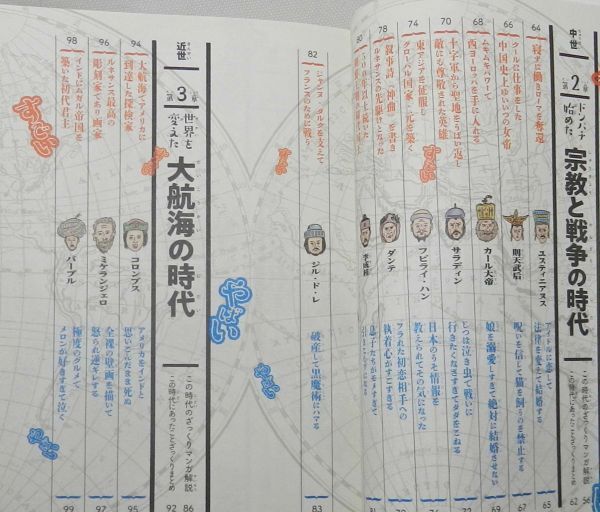 中世
第2章
ドンパチ始めた
宗教と戦争の時代
この時代のざっくりマンガ解説 56
この時代にあったことざっくりまとめ 62
64
寝ずに働きローマを奪還
ユスティニアヌス
アイドルに恋して
法律を変えて結婚する
65
66
クールに仕事をした
中国史上ゆいいつの女帝
則天武后
呪いを信じて猫を飼うのを禁止する
67
68
ムキムキパワーで
西ヨーロッパを手に入れる
カール大帝
娘を溺愛しすぎて絶対に結婚させない
69
70
十字軍から聖地をうばい返し
敵にも尊敬された英雄
サラディン
じつは泣き虫で戦いに
行きたくなさすぎてダダをこねる
71
74
東アジアを征服し
グローバル国家・元を築く
フビライ・ハン
日本のうそ情報を
教えられてその気になった
78
叙事詩『神曲』を書き
ルネサンスの先駆けとなった
ダンテ
フラれた初恋相手への
執着心がすごすぎる
80
李成桂
息子たちがモメすぎて
82
ジャンヌ・ダルクを支えて
フランスのために戦う
ジル・ド・レ
破産して黒魔術にハマる
83
近世
第3章
世界を変えた
大航海の時代
この時代のざっくりマンガ解説 86
この時代にあったことざっくりまとめ 92
94
大航海でアメリカに
到達した探検家
コロンブス
アメリカをインドと
思いこんだまま死ぬ
95
96
ルネサンス最高の
彫刻家であり画家
ミケランジェロ
全裸の壁画を描いて
怒られ逆ギレする
97
98
インドにムガル帝国を
築いた初代君主
バーブル
極度のグルメで
メロンが好きすぎて泣く
99
すごい
すごい
すごい
やばい
やばい
やばい